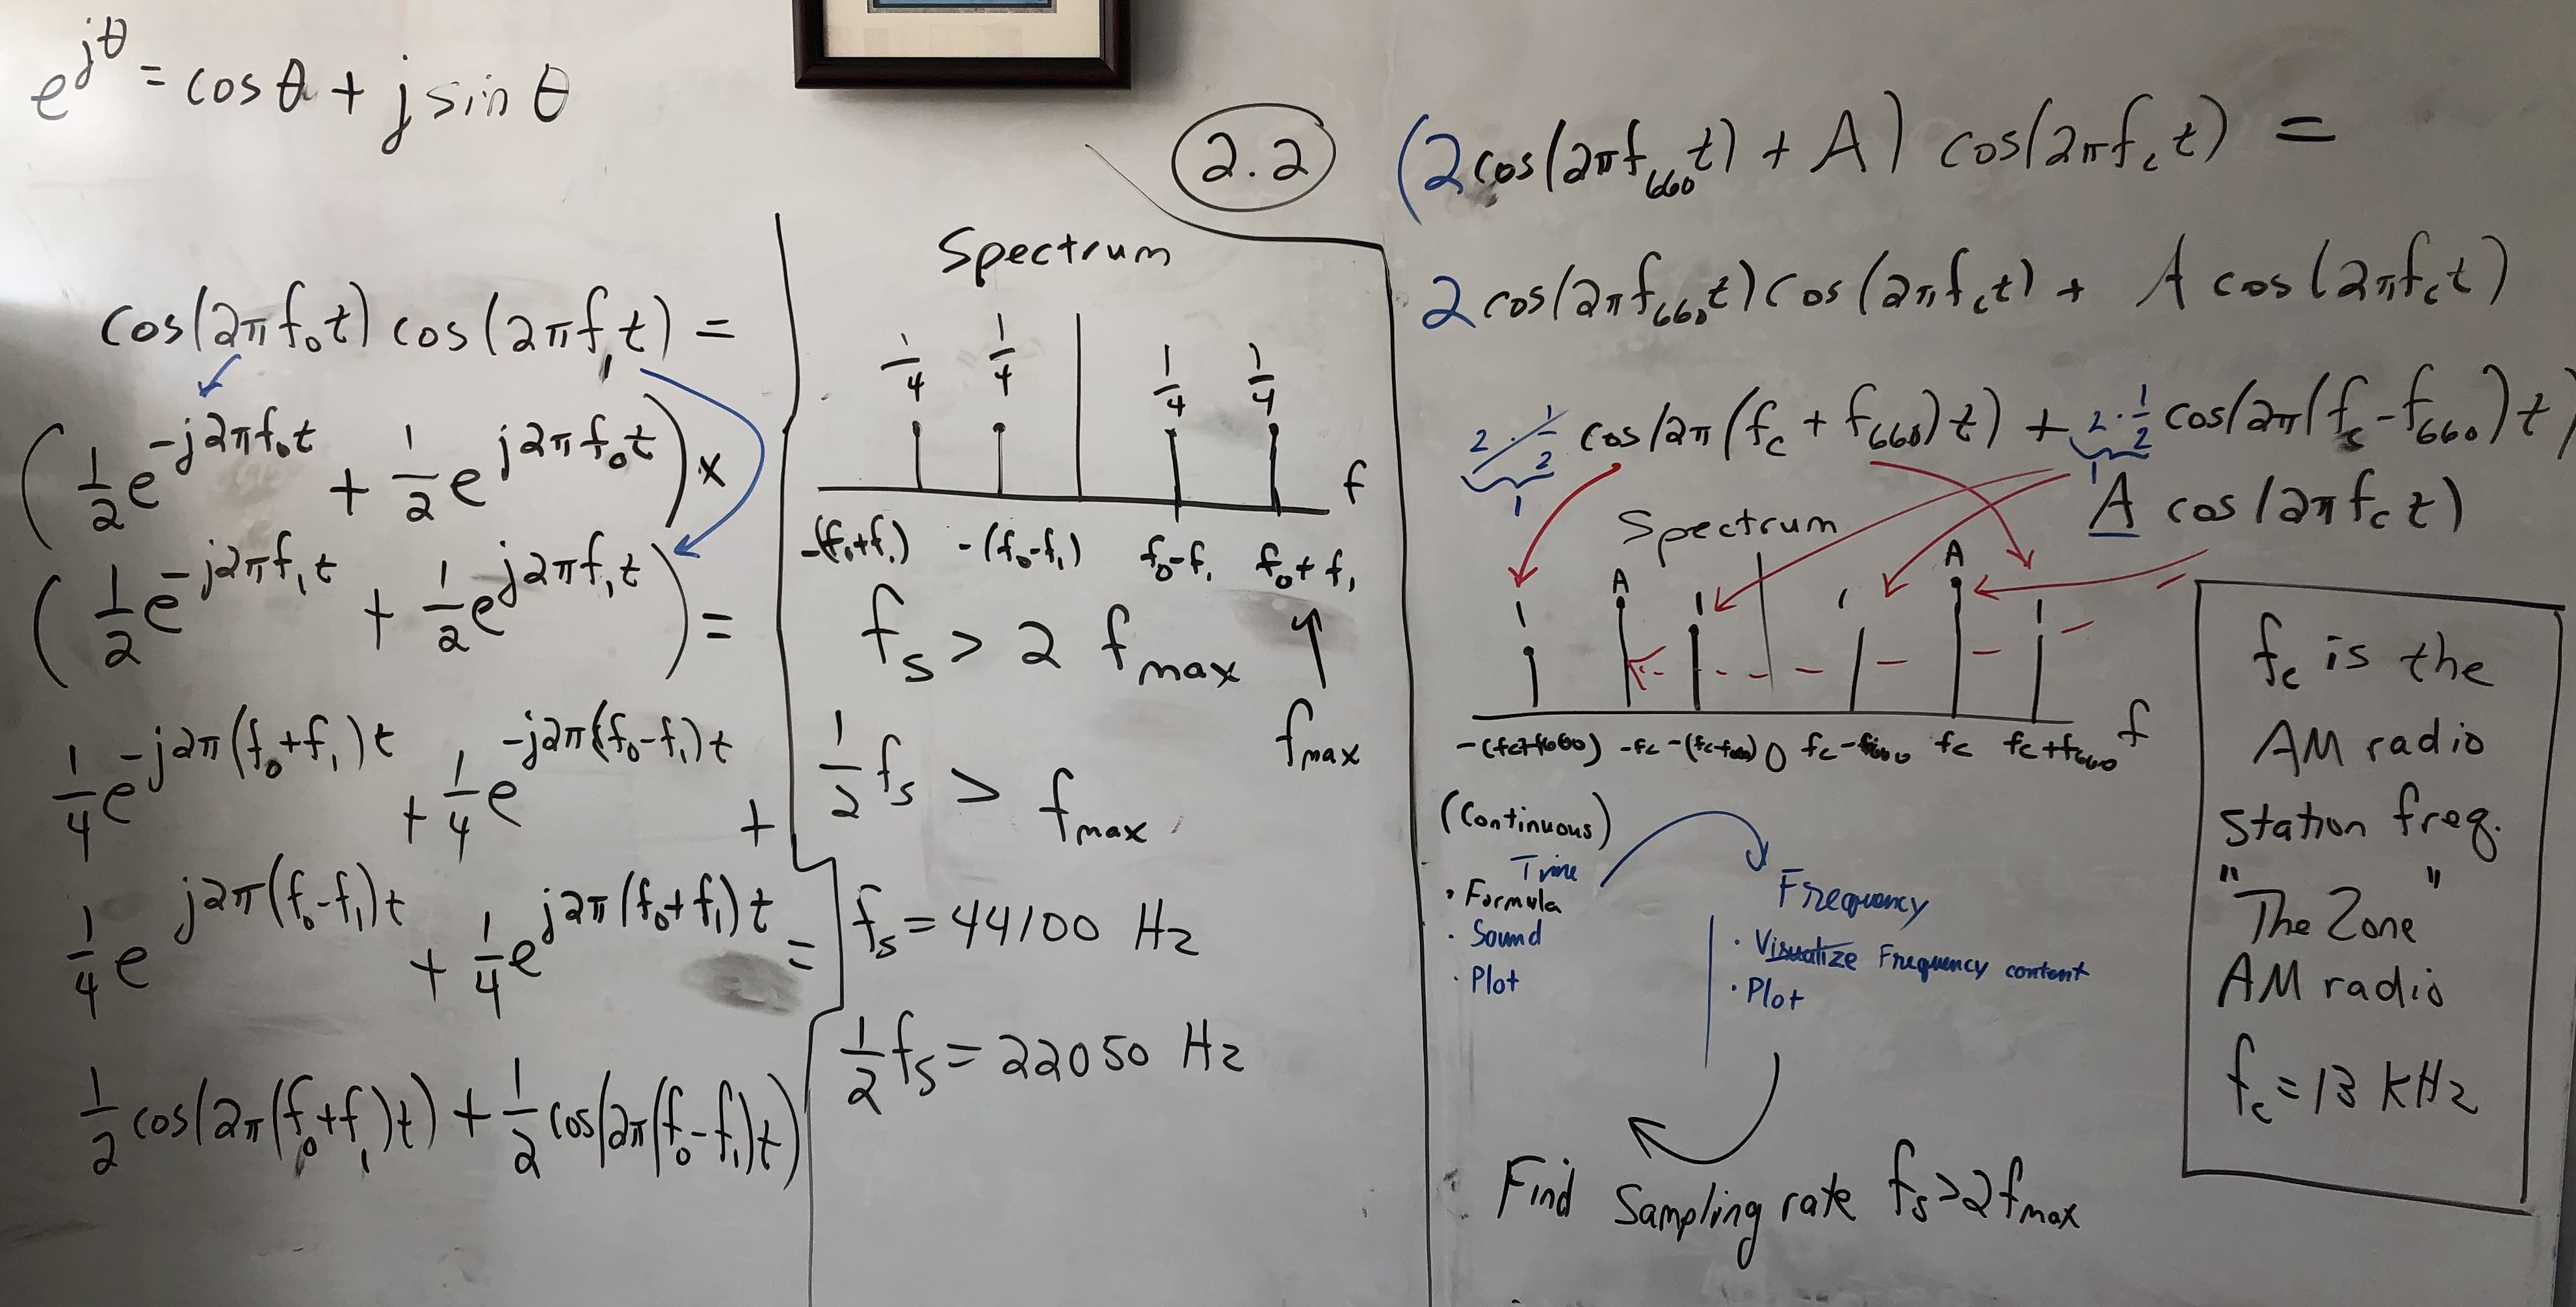 e^{jθ} = cos θ + j sin θ
cos(2π f₀t) cos(2π f₁t) =
(1/2 e^{-j2πf₀t} + 1/2 e^{j2πf₀t}) x
(1/2 e^{-j2πf₁t} + 1/2 e^{j2πf₁t}) =
1/4 e^{-j2π(f₀+f₁)t} + 1/4 e^{-j2π(f₀-f₁)t} +
1/4 e^{j2π(f₀-f₁)t} + 1/4 e^{j2π(f₀+f₁)t} =
1/2 cos(2π(f₀+f₁)t) + 1/2 cos(2π(f₀-f₁)t)
Spectrum
1/4 1/4 1/4 1/4
f
-(f₀+f₁) -(f₀-f₁) f₀-f₁ f₀+f₁
f_s > 2 f_max
f_max
1/2 f_s > f_max
f_s = 44100 Hz
1/2 f_s = 22050 Hz
2.2
(2cos(2πf₆₆₀t) + A) cos(2πf_c t) =
2 cos(2πf₆₆₀t) cos(2πf_c t) + A cos(2πf_c t)
2 · 1/2 cos(2π(f_c + f₆₆₀)t) + 2 · 1/2 cos(2π(f_c - f₆₆₀)t)
1 1
A cos(2πf_c t)
Spectrum
1 A 1 1 A 1
-(f_c+f₆₆₀) -f_c -(f_c-f₆₆₀) 0 f_c-f₆₆₀ f_c f_c+f₆₆₀ f
(Continuous)
Time
· Formula
· Sound
· Plot
Frequency
· Visualize Frequency content
· Plot
Find Sampling rate f_s>2f_max
f_c is the
AM radio
station freq.
"The Zone"
AM radio
f_c = 13 kHz